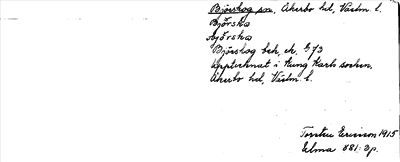 Björskog sn, Åkerbo hd, Västm. l.
Björska
Björska
Björskog beb. ek. 673
Upptecknat i Kung Karls socken,
Åkerbo hd, Västm. l.
Torsten Ericsson 1915
Elma 881: 2 p.